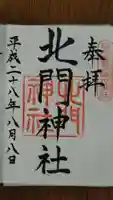 奉拝
北門神社
平成二十八年八月八日